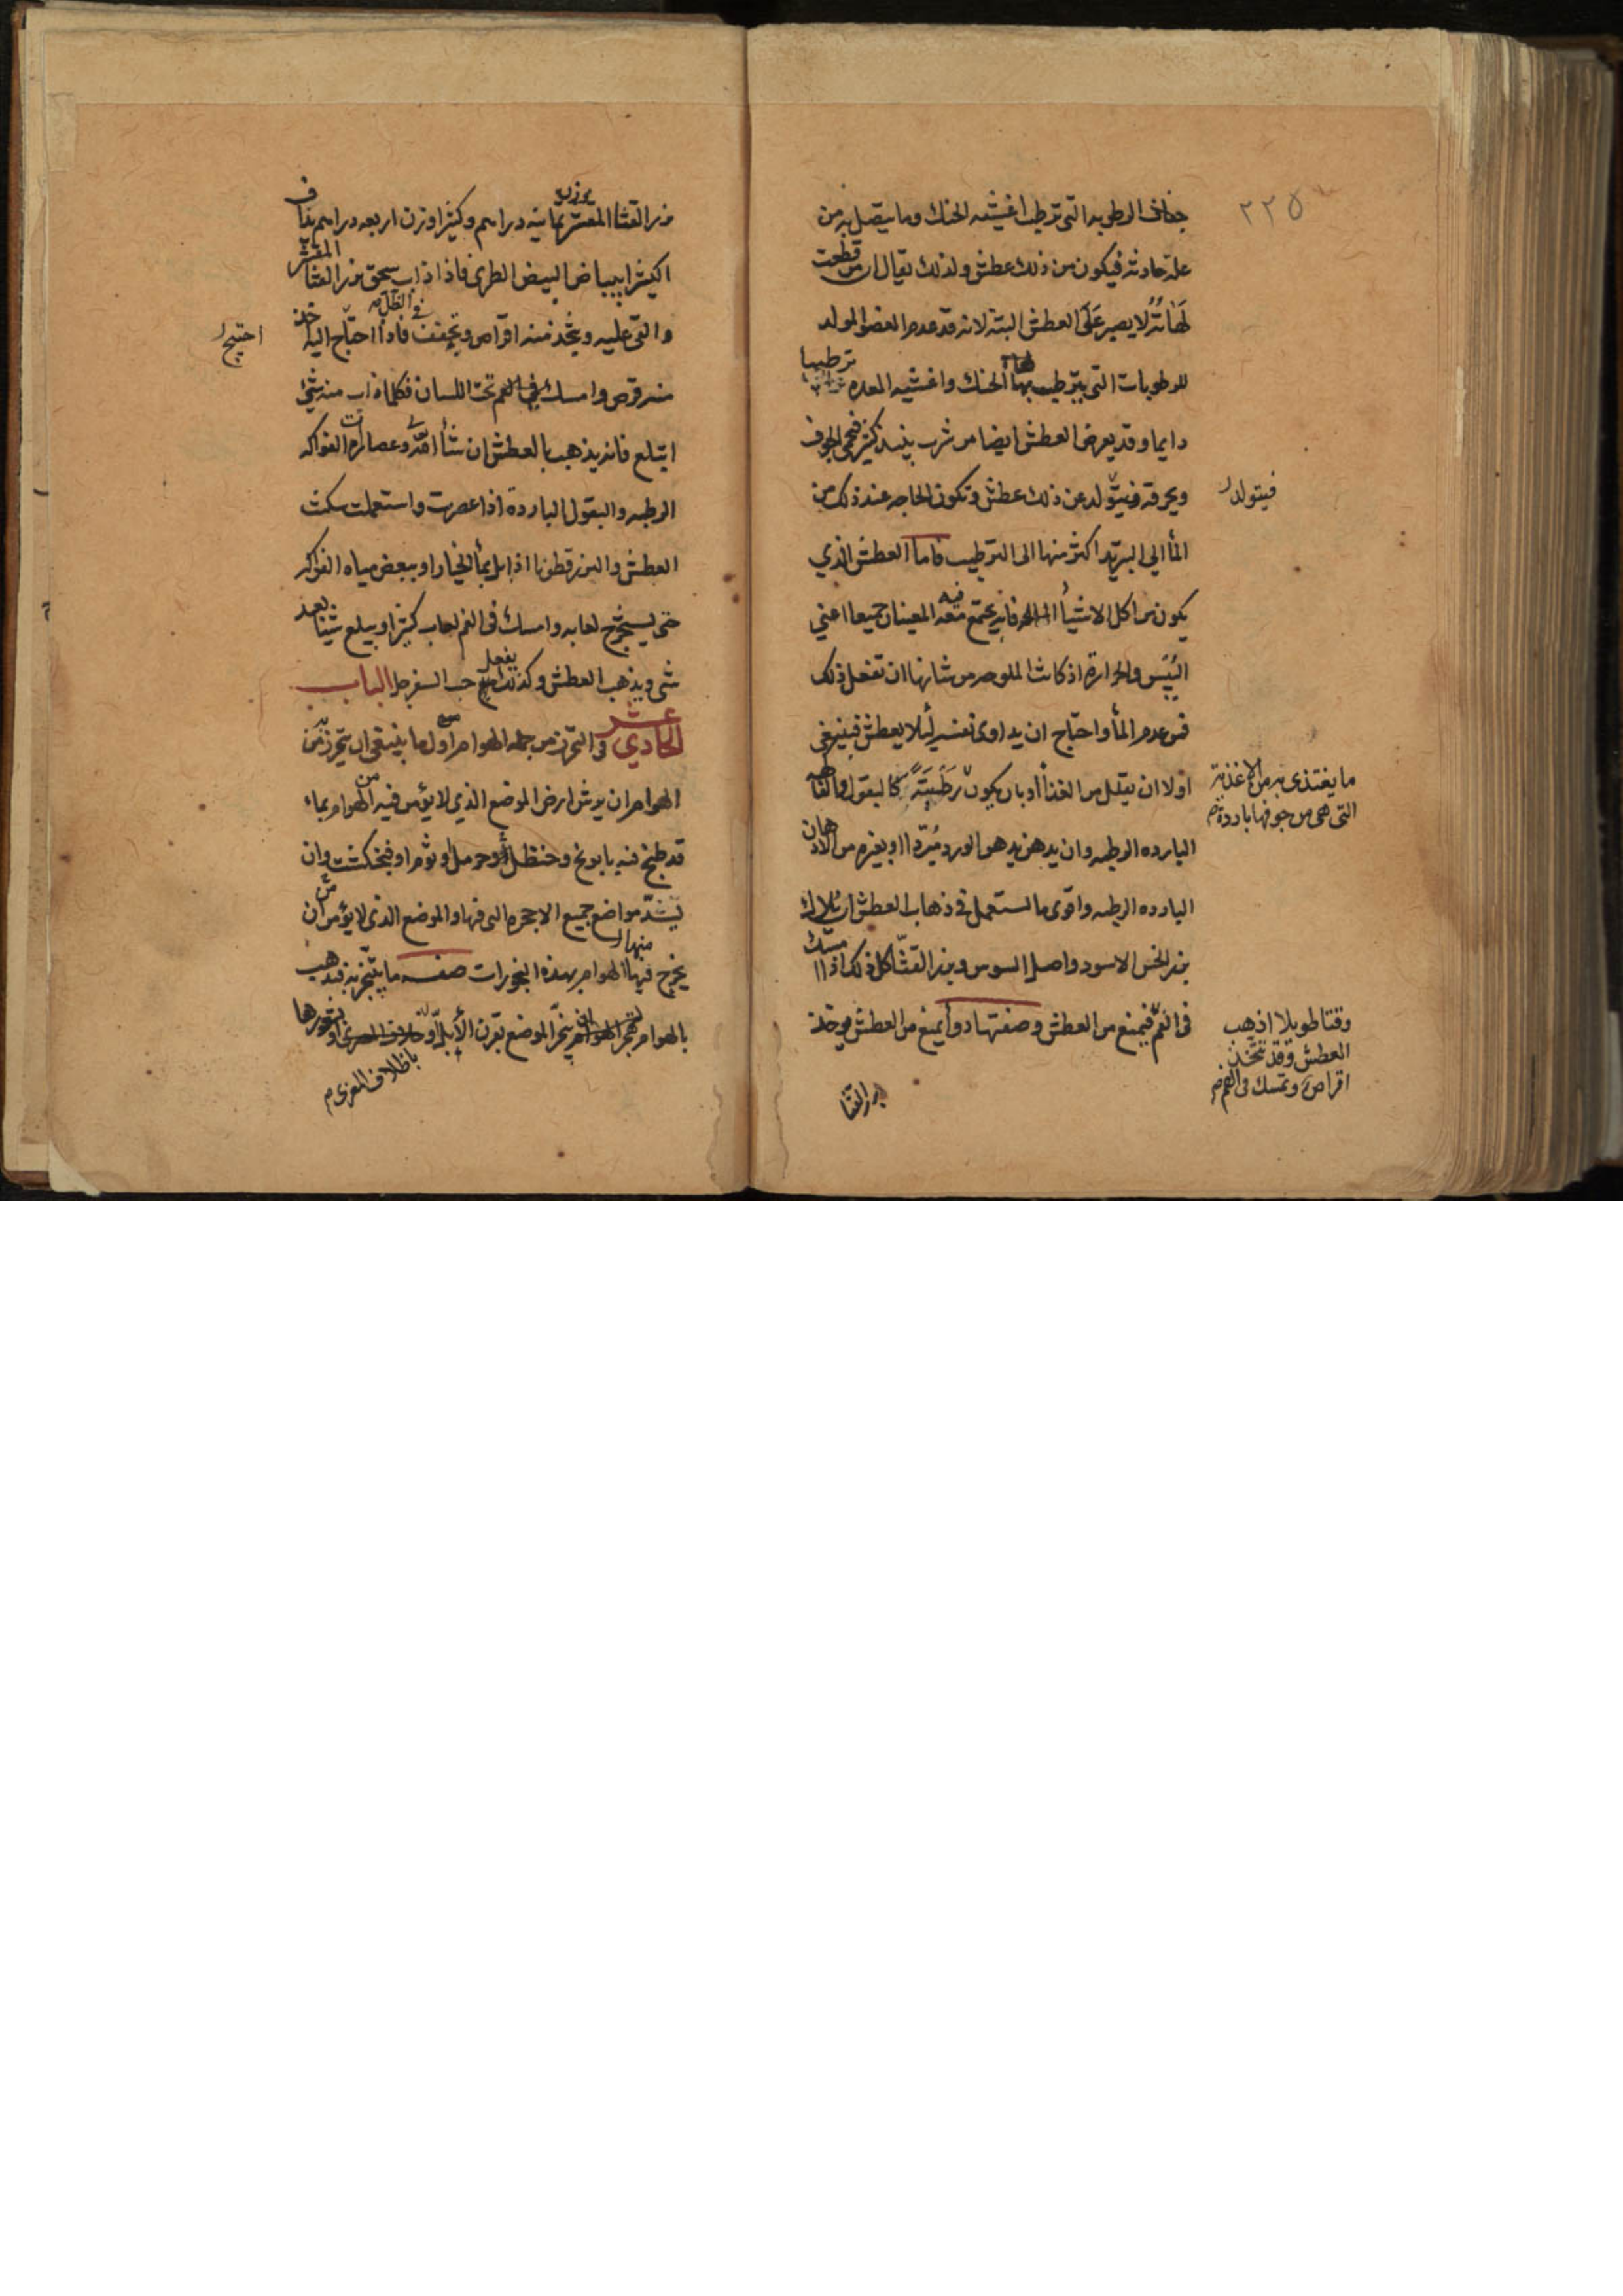 ٢٢٥
جفاف الرطوبه التى ترطب اغشيه الحنك وما يتصل به من
علة حادثه فيكون من ذلك عطش ولذلك يقال ان من قطعت
لهاته لا يصبر على العطش البتة لانه قد عدم العضو المولد
للرطوبات التى يترطب بها الحنك واغشيه المعده ترطيبا
دايما وقد يعرض العطش ايضا من شرب نبيذ كثير فيحمى الجوف
ويحرقه فيتولد عن ذلك عطش وتكون الحاجه عند ذلك من
فيتولد
المأ الى التبريد اكثر منها الى الترطيب فاما العطش الذي
يكون من اكل الاشيأ المالحه فانه يجتمع فيه المعنيان جميعا اعني
اليبس والحرارة اذ كانت الملوحه من شانها ان تفعل ذلك
فمن عدم المأ واحتاج ان يداوى نفسه لئلا يعطش فينبغي
اولا ان يقلل من الغذأ او بان يكون رطبة كالبقول والفاكهه
ما يغتذى به من الاغذية
التى هى من جوفها باردة
البارده الرطبه وان يدهن بدهن الورد مبردا او بغيره من الادهان
البارده الرطبه واقوى ما استعمل فى ذهاب العطش ان يلاك
بزر الخس الاسود واصل السوس وبزر القثا كل ذلك اذا امسك
فى الفم فيمنع من العطش وصفتها دوأ يمنع من العطش يوخذ
وقتا طويلا اذهب
العطش وقد تتخذ
اقراص وتمسك فى الفم
بزر القثا
بزر القثا المقشر بوزن ثمانيه دراهم وكثيرا وزن اربعه دراهم يذاف
الكثيرا ببياض البيض الطرى فاذا ذاب سحق بزر القثا المقشر
والقى عليه ويتخذ منه اقراص وتجفف فى الظل فاذا احتاج اليه اخذ
احتيج
منه قرص وامسك فى الفم تحت اللسان فكلما ذاب منه شئ
ابتلع فانه يذهب بالعطش ان شأ الله وعصارات الفواكه
الرطبه والبقول البارده اذا عصرت واستعملت سكنت
العطش والبزرقطونا اذا بل بمأ الخيار او ببعض مياه الفواكه
حتى يستخرج لعابه وامسك فى الفم لعاب كثير او يبلع شيئا بعد
شى ويذهب العطش وكذلك يفعل حب السفرجل الباب
الحادي عشر فى التحرز من جمله الهوام اول ما ينبغى ان يتحرز به من
الهوام ان يرش ارض الموضع الذي لا يؤمن فيه من الهوام بماء
قد طبخ فيه بابونج وحنظل او حرمل او ثوم او فنجنكشت وان
يسد مواضع جميع الاجحره التى فيها والموضع الذى لا يؤمن من ان
يخرج منها الهوام بهذه البخورات صفه ما يتبخر به فيذهب
بالهوام يبخر الموضع بقرن الأيل او
باظلاف المعزى